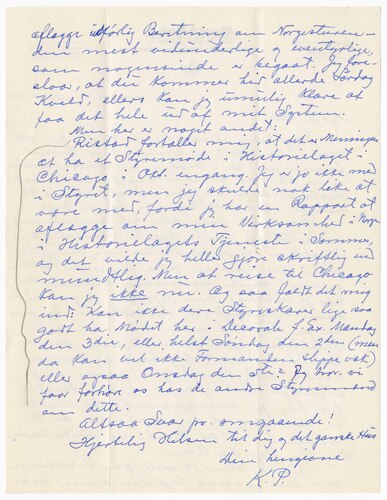 aflægge udførlig Beretning om Norgesturen —
den mest vidunderlige og eventyrlige,
som nogensinde er begaat. Jeg fore-
slaar, at du kommer hid allerde Lørdag
Kveld, ellers kan jeg umulig klare at
faa det hele ud af mit System.
Men her er noget andet:
Ristad fortæller mig, at det er Meningen
at ha et Styremøde i Historielaget i
Chicago i Okt. engang. Jeg er jo ikke med
i Styret, men jeg skulde nok like at
være med, fordi jeg har en Rapport at
aflægge om min Virksomhed i Norge
i Historielagets Tjeneste i Sommer,
og det vilde jeg heller gjøre skriftlig end
mundtlig. Men at reise til Chicago
kan jeg ikke nu. Og saa faldt det mig
ind: Kan ikke dere Styreskarer lige saa
godt ha Mødet her i Decorah f. Ex. Mandag
den 3die, eller helst Søndag den 2den (men
da kan vel ikke Formanden slippe væk)
eller ogsaa Onsdag den 5te?
faar forhøre os hos de andre Styresmænd
om dette.
Altsaa Svar pr. omgaaende!
Hjertelig Hilsen til dig og det ganske Hus
Din hengivne
K. P.